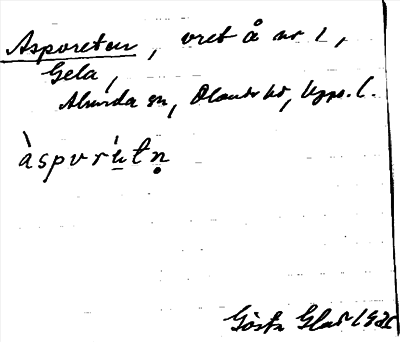 Aspvreten, vret å nr 1,
Gela,
Almunda sn, Olands hd, Upps. l.
àspvrètṇ
Gösta Glas